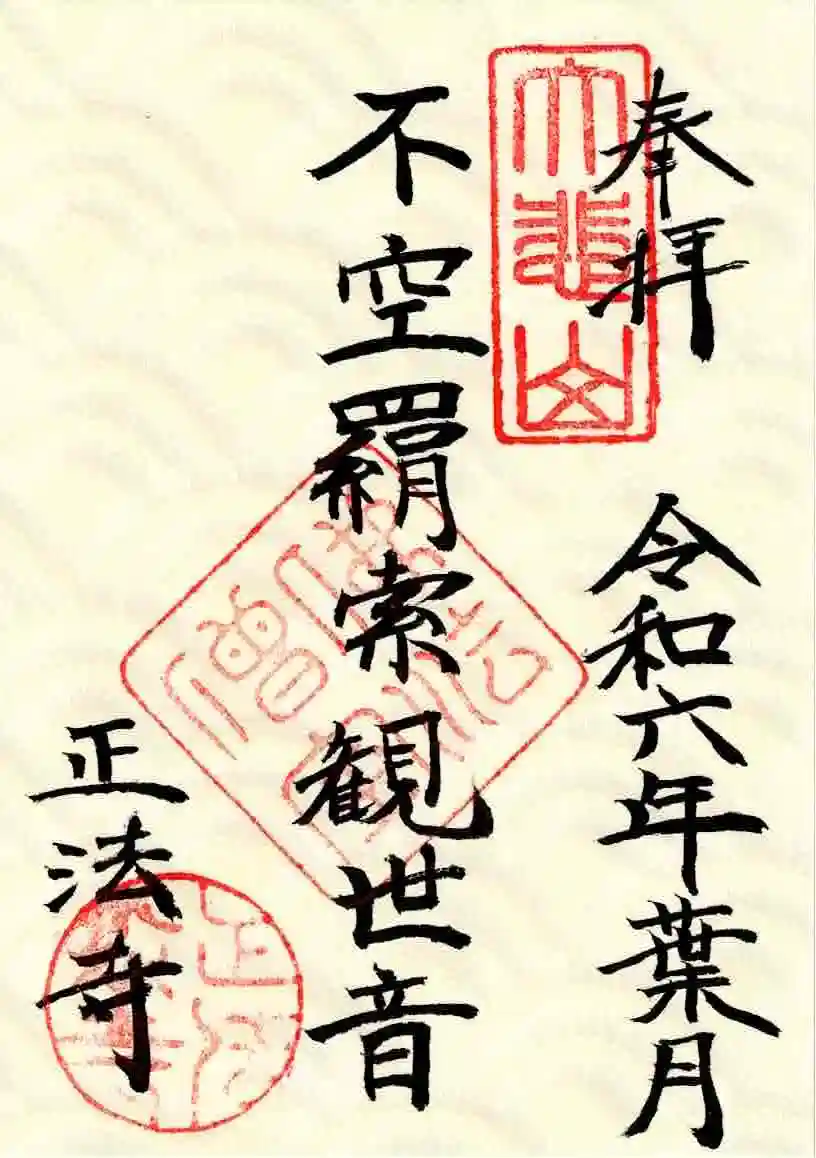 奉拝
大悲山
令和六年葉月
不空羂索観世音
佛法僧寶
正法寺